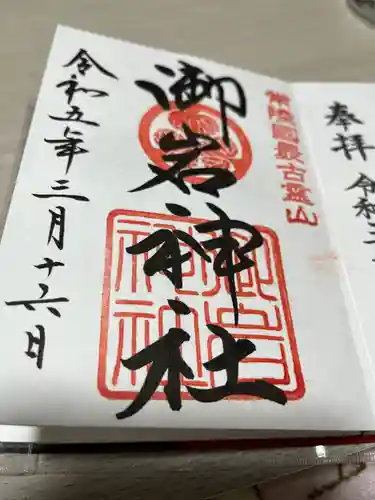 奉拝
令和
常陸國最古霊山
御岩神社
御岩
神社
令和五年三月十六日